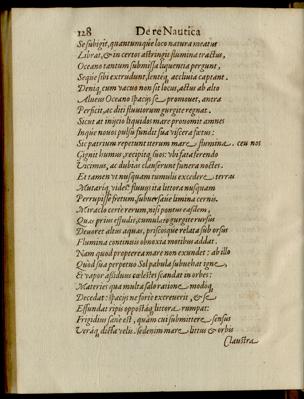 128 De re Nautica
Se subigit, quantumque loco natura meatus
Librat, & in certos astringit flumina tractus,
Oceano tantum submissa liquentia pergunt,
Seque sibi extrudunt, lenteq, acclivia captant.
Deniq, cum vacuo non sit locus, actus ab alto
Alveus Oceano spacijs se promovet, antra
Perficit, ac diti fluviorum gurgite regnat.
Sicut at iniectio liquidos mare pronomit amnes
Inque novos pulsu fundit sua viscera fœtus:
Sic patrium repetunt iterum mare flumina. ceu nos
Gignit humus, recipitq, suos: ubi fata ferendo
Vicimus, ac dubijs clauserunt funera noctes.
Et tamen ut nusquam tumulu excedere terras
Mutariq, vides fluvij ita littora nusquam
Perrupisse fretum, subversave limina cernis.
Miraclo certe rerum, nisi pontus easdem,
Quas prius effudit, cumulato gurgite rursus
Devoret altus aquas, priscosque relata sub orsus
Flumina continuis obnoxia motibus addat.
Nam quod propterea mare non exundet: ab illo
Quod sua perpetuo Sol pabula subuehat igne,
Et vapor assiduus cœlestes scandat in orbes:
Materies qua multa salo ratione modoq,
Decedat: spacijs ne forte excreverit, & se
Effundat ripis oppostaq, littora rumpat:
Frigidius sane est, quam cui submittere sensus
Veraq, dicta velis. sedenim mare littus & orbis
Claustra